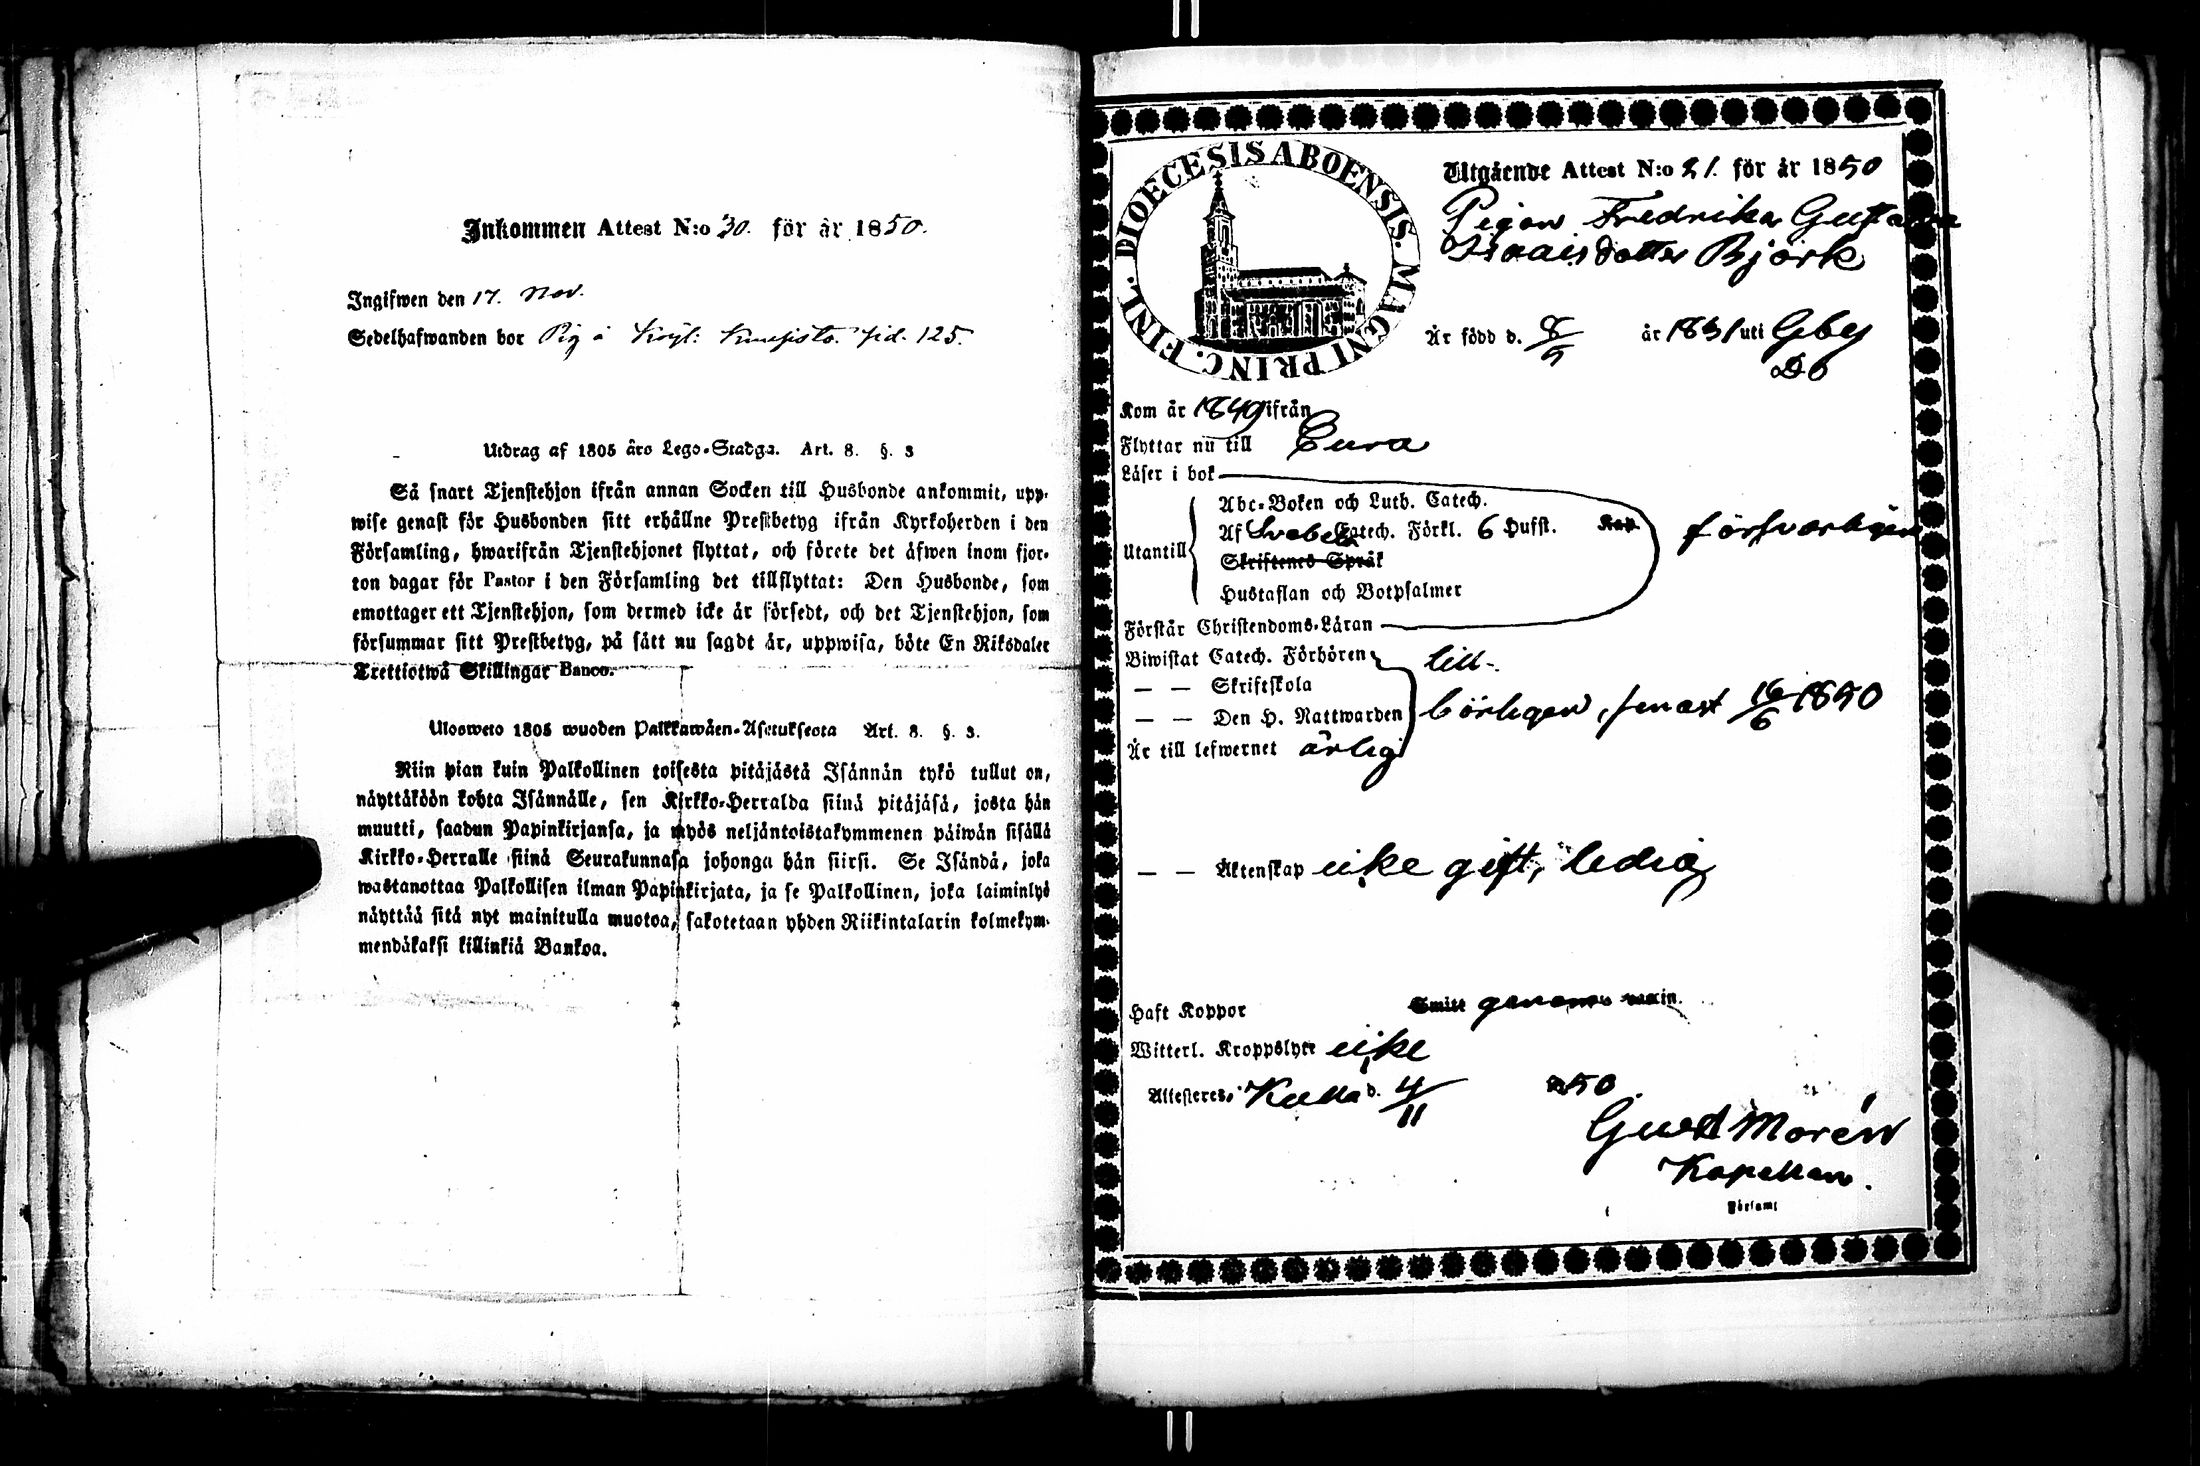 Inkommen Attest N:o 30. för år 1850.
Ingifwen den 17. Nov.
Sedelhafwanden bor Pig å Kögl: sid. 125.
Utdrag af 1805 års Lego-Stadga. Art. 8. §. 3
Så snart Tjenstehjon ifrån annan Socken till Husbonde ankommit, upp-
wise genast för Husbonden sitt erhållne Prestbetyg ifrån Kyrkoherden i den
Församling, hwarifrån Tjenstehjonet flyttat, och förete det äfwen inom fjor-
ton dagar för Pastor i den Församling det tillflyttat: Den Husbonde, som
emottager ett Tjenstehjon, som dermed icke är försedt, och det Tjenstehjon, som
försummar sitt Prestbetyg, på sätt nu sagdt är, uppwisa, böte En Riksdaler
Trettiotwå Skillingar Banco.
Ulosweto 1805 wuoden Palkkawäen-Asetuksesta Art. 8. §. 3.
Niin pian kuin Palkollinen toisesta pitäjästä Isännän tykö tullut on,
näyttäköön kohta Isännälle, sen Kirkko-Herralda siinä pitäjäsä, josta hän
muutti, saadun Papinkirjansa, ja myös neljäntoistakymmenen päiwän sisällä
Kirkko-Herralle siinä Seurakunnasa johonga hän siirsi. Se Isändä, joka
wastanottaa Palkollisen ilman Papinkirjata, ja se Palkollinen, joka laiminlyö
näyttää sitä nyt mainitulla muotoa, sakotetaan yhden Riikintalarin kolmekym-
mendäkaksi killinkiä Bankoa.
DIOECESIS ABOENSIS. MAGNI PRINC. FINL.
Utgående Attest N:o 21. för år 1850
Pigan Fredrika Gustafva
Isaaisdotter Björk
Är född d. 8/9 år 1831 uti Gby
Do
Kom år 1849 ifrån
Flyttar nu till Eura
Läser i bok
Abc-Boken och Luth. Catech.
Utantill Af Svebel. Catech. Förkl. 6 Hufst. Kap försvarligen
Skriftenes Språk
Hustaflan och Botpsalmer
Förstår Christendoms-Läran
Biwistat Catech. Förhören till-
— — Skriftskola
— — Den H. Nattwarden börligen, senast 16/6 1850
Är till lefwernet ärlig
— — Äktenskap icke gift, ledig
Haft Koppor Smitt genom vaccin.
Witterl. Kroppslyte icke
Attesteres, Kulla d. 4/11 1850
Gust Morén
Kapellan.
Församl